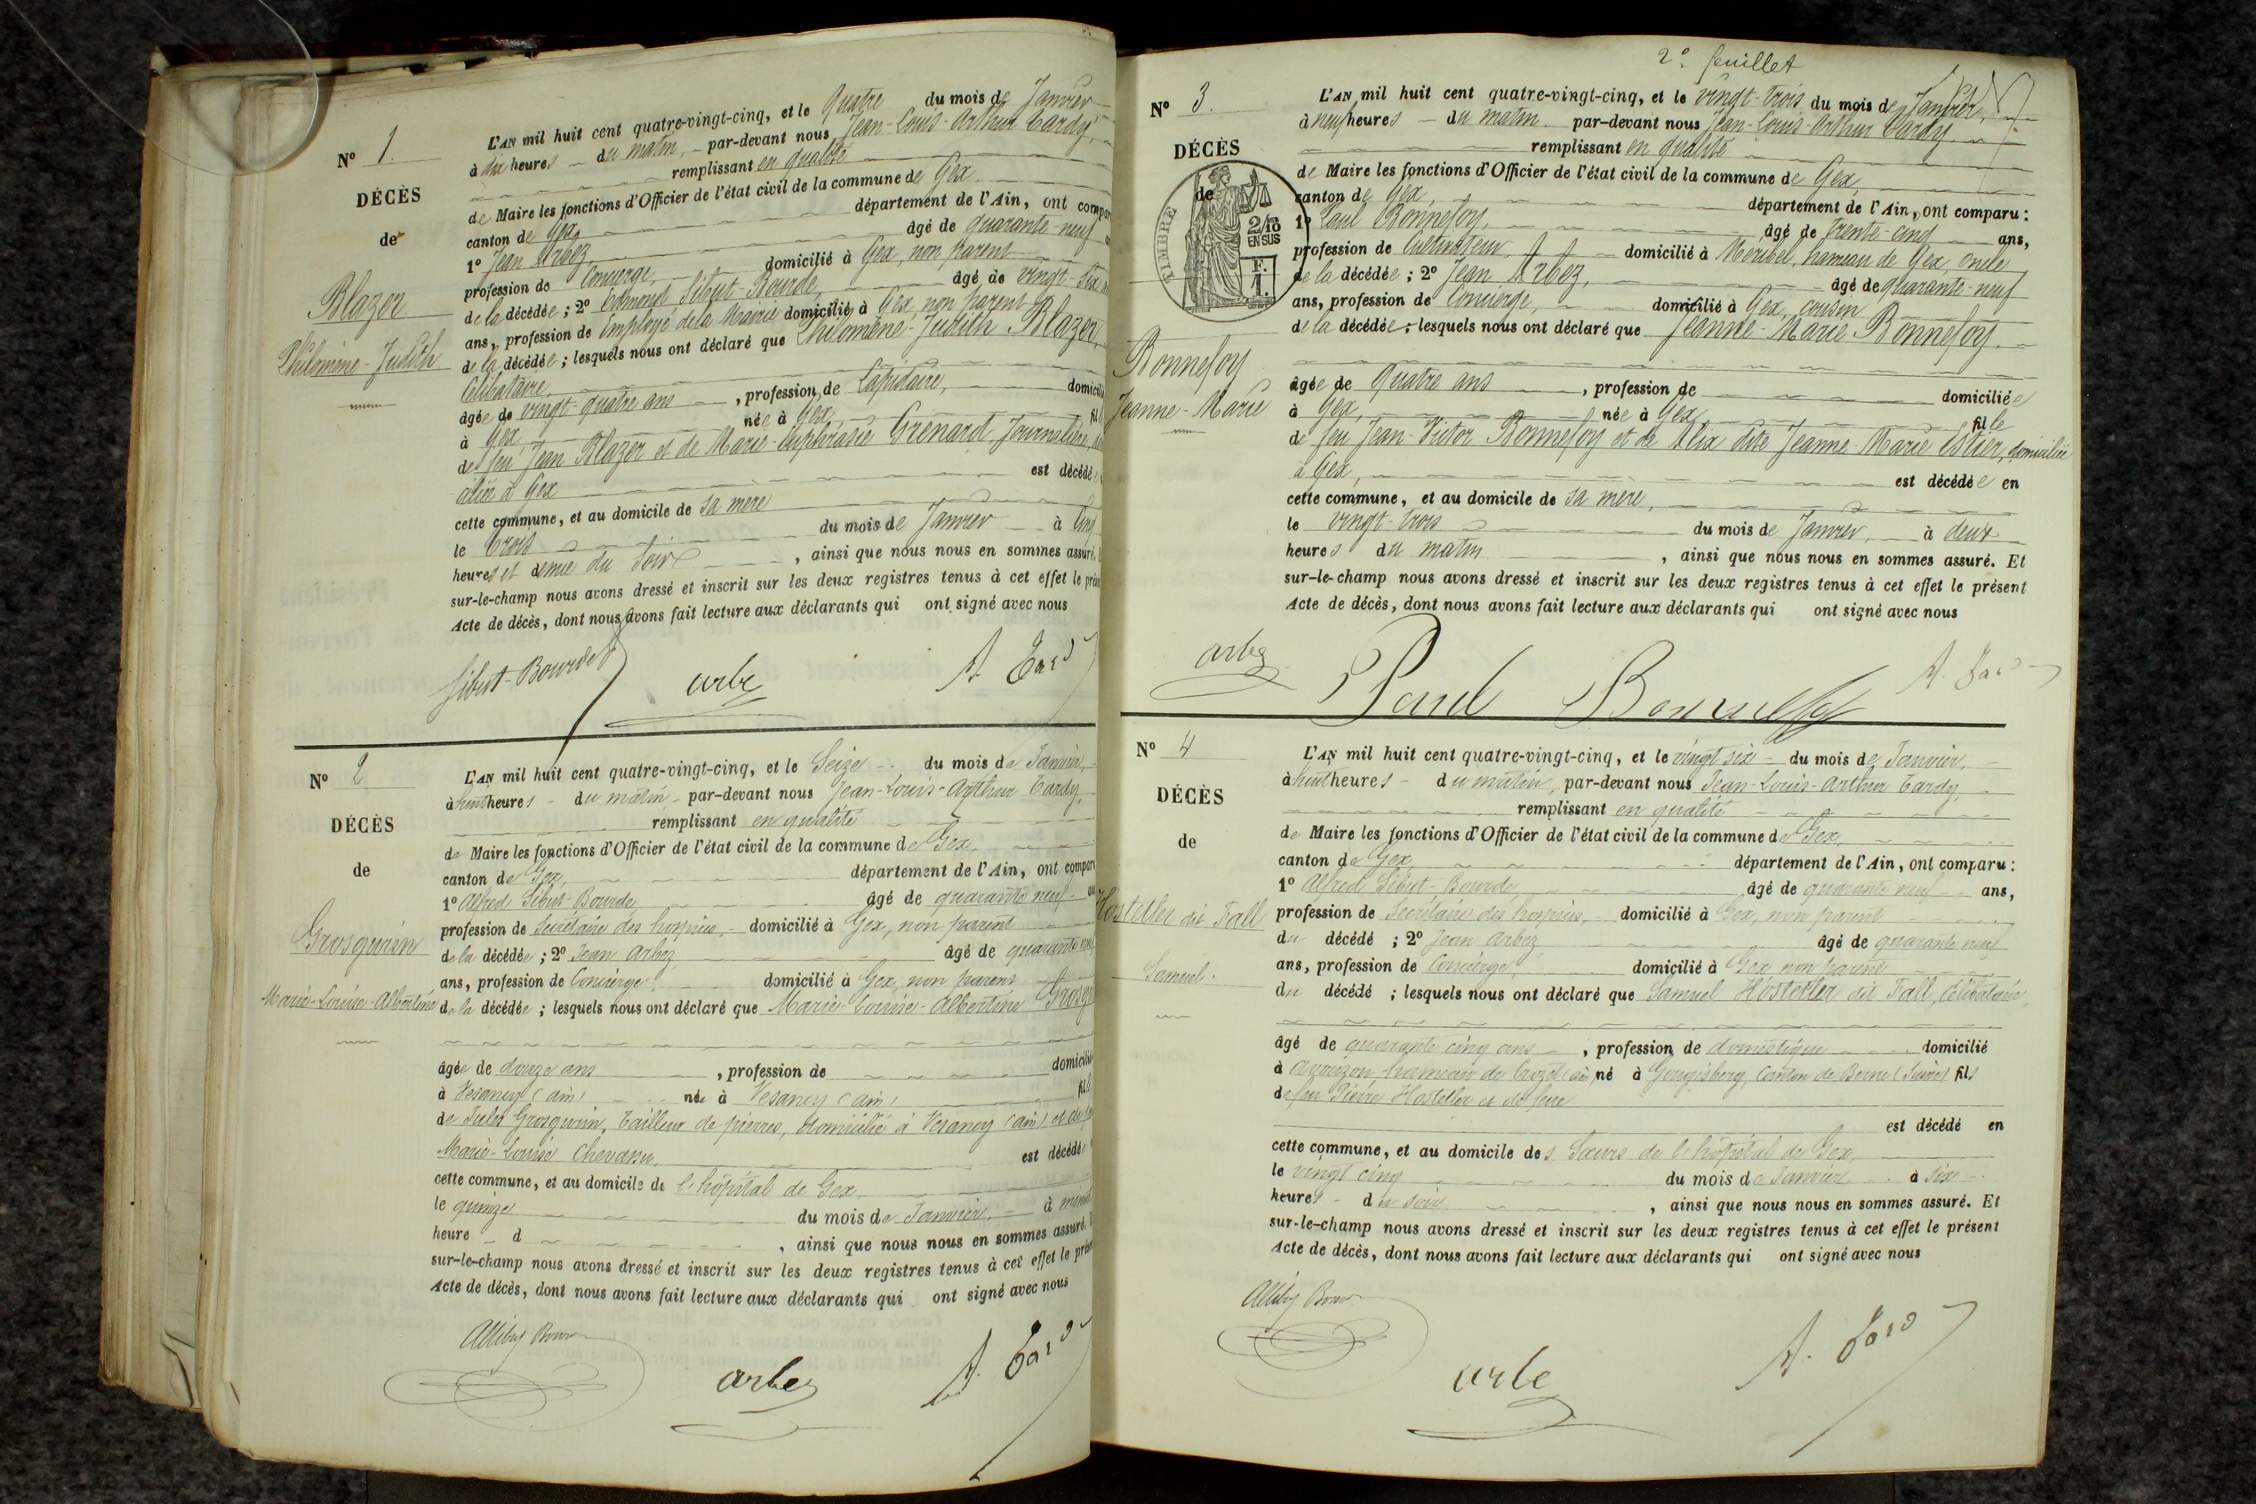 Nº 1.
DÉCÈS
de
Blazer
Philomène-Judith
L'AN mil huit cent quatre-vingt-cinq, et le Quatre du mois de Janvier
à dix heures du matin, par-devant nous Jean-Louis-Arthur Tardy,
remplissant en qualité
de Maire les fonctions d'Officier de l'état civil de la commune de Gex
canton de Gex, département de l'Ain, ont compar
1º Jean Arbez, âgé de quarante-neuf
profession de Concierge, domicilié à Gex, non parent
de la décédée ; 2º Edmond Sibut-Bourde, âgé de vingt-six
ans, profession de Employé de la Mairie domicilié à Gex, non parent
de la décédée ; lesquels nous ont déclaré que Philomène-Judith Blazer,
Célibataire,
âgée de vingt-quatre ans, profession de Lapidaire, domicilié
à Gex née à Gex, fil
de feu Jean Blazer et de Marie-Euphrasie Grenard, Journalière,
ciliée à Gex est décédée
cette commune, et au domicile de sa mère
le trois du mois de Janvier à Cinq
heures et demie du Soir, ainsi que nous nous en sommes assuré.
sur-le-champ nous avons dressé et inscrit sur les deux registres tenus à cet effet le prés
Acte de décès, dont nous avons fait lecture aux déclarants qui ont signé avec nous
Sibut-Bourde arbez A. Tardy
Nº 2
DÉCÈS
de
Grosgurin
Marie-Louise-Albertine
L'AN mil huit cent quatre-vingt-cinq, et le Seize du mois de Janvier,
à huit heures du matin, par-devant nous Jean-Louis-Arthur Tardy,
remplissant en qualité
de Maire les fonctions d'Officier de l'état civil de la commune de Gex,
canton de Gex, département de l'Ain, ont compar
1º Alfred Sibut-Bourde âgé de quarante neuf
profession de Secrétaire des hospices, domicilié à Gex, non parent
de la décédée ; 2º Jean Arbez âgé de quarante neuf
ans, profession de Concierge, domicilié à Gex, non parent
de la décédée ; lesquels nous ont déclaré que Marie-Louise-Albertine Grosgu
âgée de douze ans, profession de domicilié
à Vesancy (ain) née à Vesancy (ain) fil
de Jules Grosgurin, tailleur de pierres, domicilié à Vesancy (ain) et de
Marie-Louise Chevassu, est décédée
cette commune, et au domicile de l'hôpital de Gex
le quinze du mois de Janvier, à minuit
heure d, ainsi que nous nous en sommes assuré.
sur-le-champ nous avons dressé et inscrit sur les deux registres tenus à cet effet le prése
Acte de décès, dont nous avons fait lecture aux déclarants qui ont signé avec nous
arbez A. Tardy
2º feuillet
Nº 3.
DÉCÈS
de
TIMBRE
2/10
EN SUS
F.
1.
Bonnefoy
Jeanne-Marie
L'AN mil huit cent quatre-vingt-cinq, et le vingt-trois du mois de Janvier,
à neuf heures du matin par-devant nous Jean-Louis-Arthur Tardy,
remplissant en qualité
de Maire les fonctions d'Officier de l'état civil de la commune de Gex,
canton de Gex, département de l'Ain, ont comparu :
1º Paul Bonnefoy, âgé de trente-cinq ans,
profession de Cultivateur, domicilié à Méribel, hameau de Gex, oncle
de la décédée ; 2º Jean Arbez, âgé de quarante-neuf
ans, profession de Concierge, domicilié à Gex, cousin
de la décédée ; lesquels nous ont déclaré que Jeanne-Marie Bonnefoy,
âgée de Quatre ans, profession de domiciliée
à Gex, née à Gex, fille
de feu Jean-Victor Bonnefoy et de Alix dite Jeanne-Marie Estier, domiciliée
à Gex, est décédée en
cette commune, et au domicile de sa mère,
le vingt-trois du mois de Janvier, à deux
heures du matin, ainsi que nous nous en sommes assuré. Et
sur-le-champ nous avons dressé et inscrit sur les deux registres tenus à cet effet le présent
Acte de décès, dont nous avons fait lecture aux déclarants qui ont signé avec nous
arbez Paul Bonnefoy A. Tardy
Nº 4
DÉCÈS
de
Hostetler dit Fall
Samuel.
L'AN mil huit cent quatre-vingt-cinq, et le vingt six du mois de Janvier,
à huit heures du matin, par-devant nous Jean-Louis-Arthur Tardy,
remplissant en qualité
de Maire les fonctions d'Officier de l'état civil de la commune de Gex,
canton de Gex, département de l'Ain, ont comparu :
1º Alfred Sibut-Bourde, âgé de quarante neuf ans,
profession de Secrétaire des hospices, domicilié à Gex, non parent
du décédé ; 2º Jean Arbez âgé de quarante neuf
ans, profession de Concierge, domicilié à Gex non parent
du décédé ; lesquels nous ont déclaré que Samuel Hostetler dit Fall, Célibataire,
âgé de quarante cinq ans, profession de domestique domicilié
à hameau de Crozet (ain) né à Gougisberg, Canton de Berne (Suisse) fils
de feu Pierre Hostetler et de feue
est décédé en
cette commune, et au domicile des Sœurs de l'hôpital de Gex,
le vingt cinq du mois de Janvier à six
heures du soir, ainsi que nous nous en sommes assuré. Et
sur-le-champ nous avons dressé et inscrit sur les deux registres tenus à cet effet le présent
Acte de décès, dont nous avons fait lecture aux déclarants qui ont signé avec nous
arbez A. Tardy